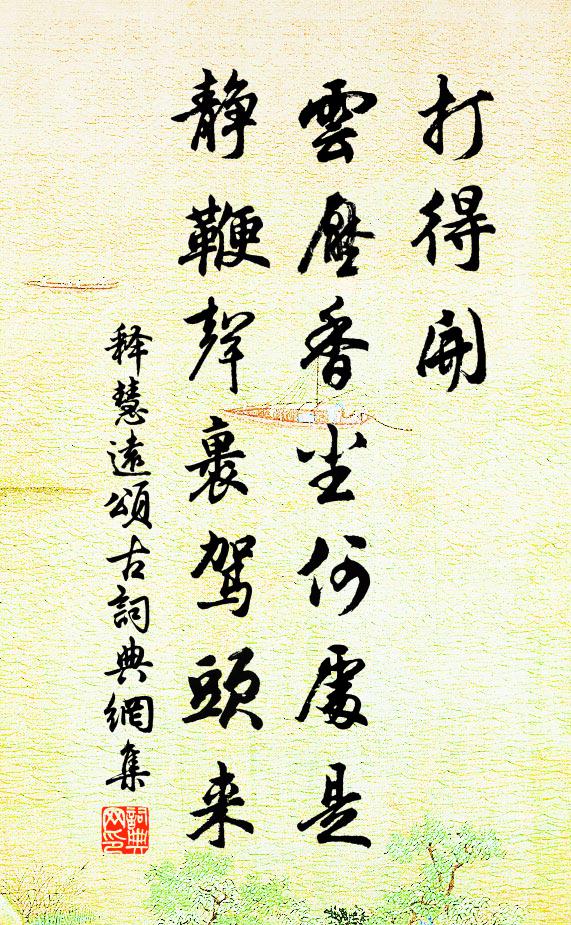 打得開
雲壓香尘何處是
静鞭聲裏駕頭来
释慧遠頌古詞典網集
詞典网印